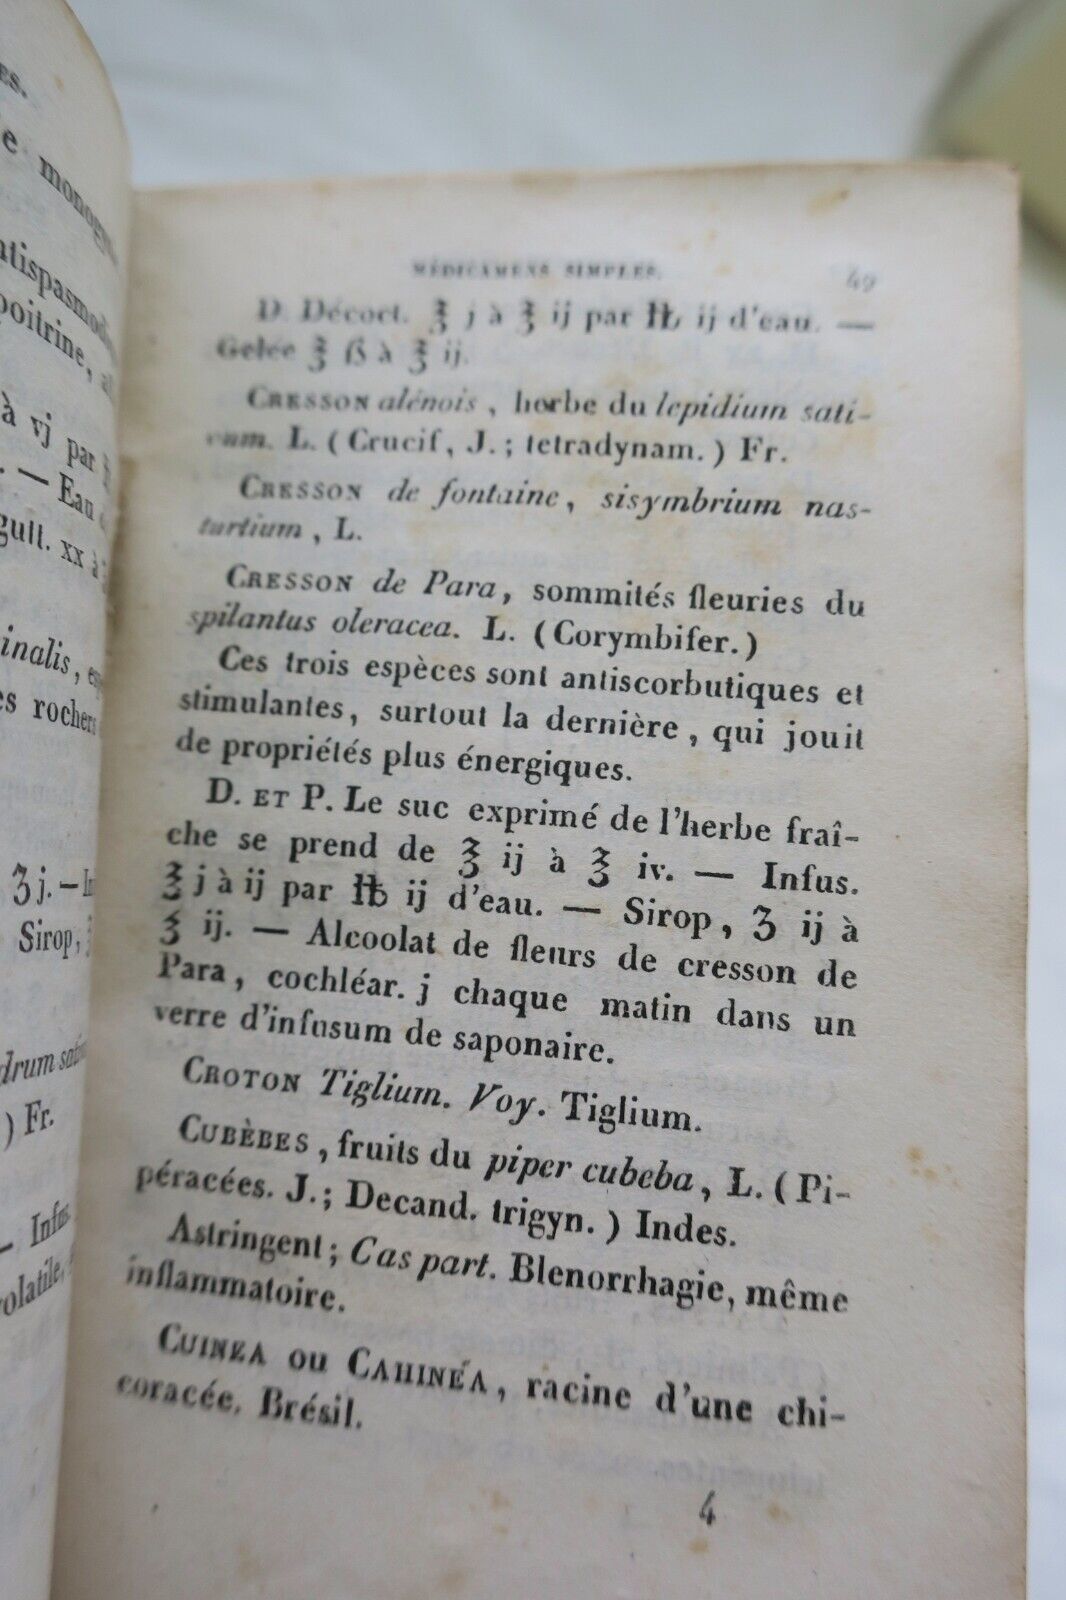 ES.
e monogy
ntispasmod
poitrine, a
à vj par
. — Eau
gutt. xx à
inalis, esp
es rochers
ʒ j. — In
Sirop, ʒ
drum sativ
) Fr.
— Infus.
volatile,
MÉDICAMENS SIMPLES. 49
D. Décoct. ℥ j à ℥ ij par ℔ ij d'eau. —
Gelée ℥ ß à ℥ ij.
CRESSON alénois, herbe du lepidium sati-
vum. L. (Crucif, J.; tetradynam.) Fr.
CRESSON de fontaine, sisymbrium nas-
turtium, L.
CRESSON de Para, sommités fleuries du
spilantus oleracea. L. (Corymbifer.)
Ces trois espèces sont antiscorbutiques et
stimulantes, surtout la dernière, qui jouit
de propriétés plus énergiques.
D. ET P. Le suc exprimé de l'herbe fraî-
che se prend de ℥ ij à ℥ iv. — Infus.
℥ j à ij par ℔ ij d'eau. — Sirop, ʒ ij à
℥ ij. — Alcoolat de fleurs de cresson de
Para, cochléar. j chaque matin dans un
verre d'infusum de saponaire.
CROTON Tiglium. Voy. Tiglium.
CUBÈBES, fruits du piper cubeba, L. (Pi-
péracées. J.; Decand. trigyn.) Indes.
Astringent; Cas part. Blenorrhagie, même
inflammatoire.
CUINEA OU CAHINÉA, racine d'une chi-
coracée. Brésil.
4